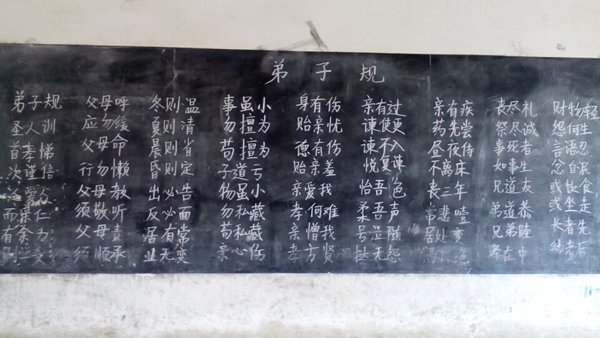 弟子规
弟子规
圣人训
首孝悌
次谨信
泛爱众
而亲仁
有余力
父母呼
应勿缓
父母命
行勿懒
父母教
须敬听
父母责
须顺承
冬则温
夏则清
晨则省
昏则定
出必告
反必面
居有常
业无变
事虽小
勿擅为
苟擅为
子道亏
物虽小
勿私藏
苟私藏
亲心伤
身有伤
贻亲忧
德有伤
贻亲羞
亲爱我
孝何难
亲憎我
孝方贤
亲有过
谏使更
谏不入
悦复谏
怡吾色
柔吾声
号泣随
挞无怨
亲有疾
药先尝
昼夜侍
不离床
丧三年
常悲
居处变
丧尽礼
祭尽诚
事死者
如事生
兄道友
弟道恭
兄弟睦
孝在中
财物轻
怨何生
言语忍
忿自泯
或饮食
或坐走
长者先